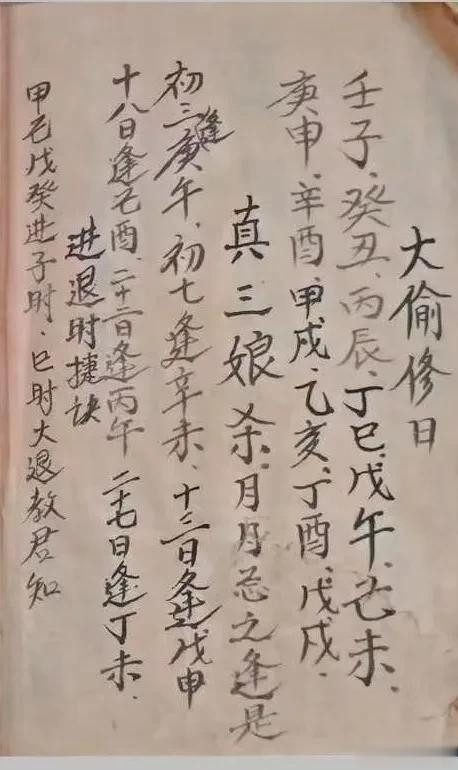 大偷修日
壬子、癸丑、丙辰、丁巳、戊午、己未、
庚申、辛酉、甲戌、乙亥、丁酉、戊戌、
真三娘杀、月月忌之逢是
初三逢庚午、初七逢辛未、十三日逢戊申
十八日逢己酉、二十二日逢丙午 二十七日逢丁未、
进退时捷诀
甲己戊癸进子时、巳时大退教君知